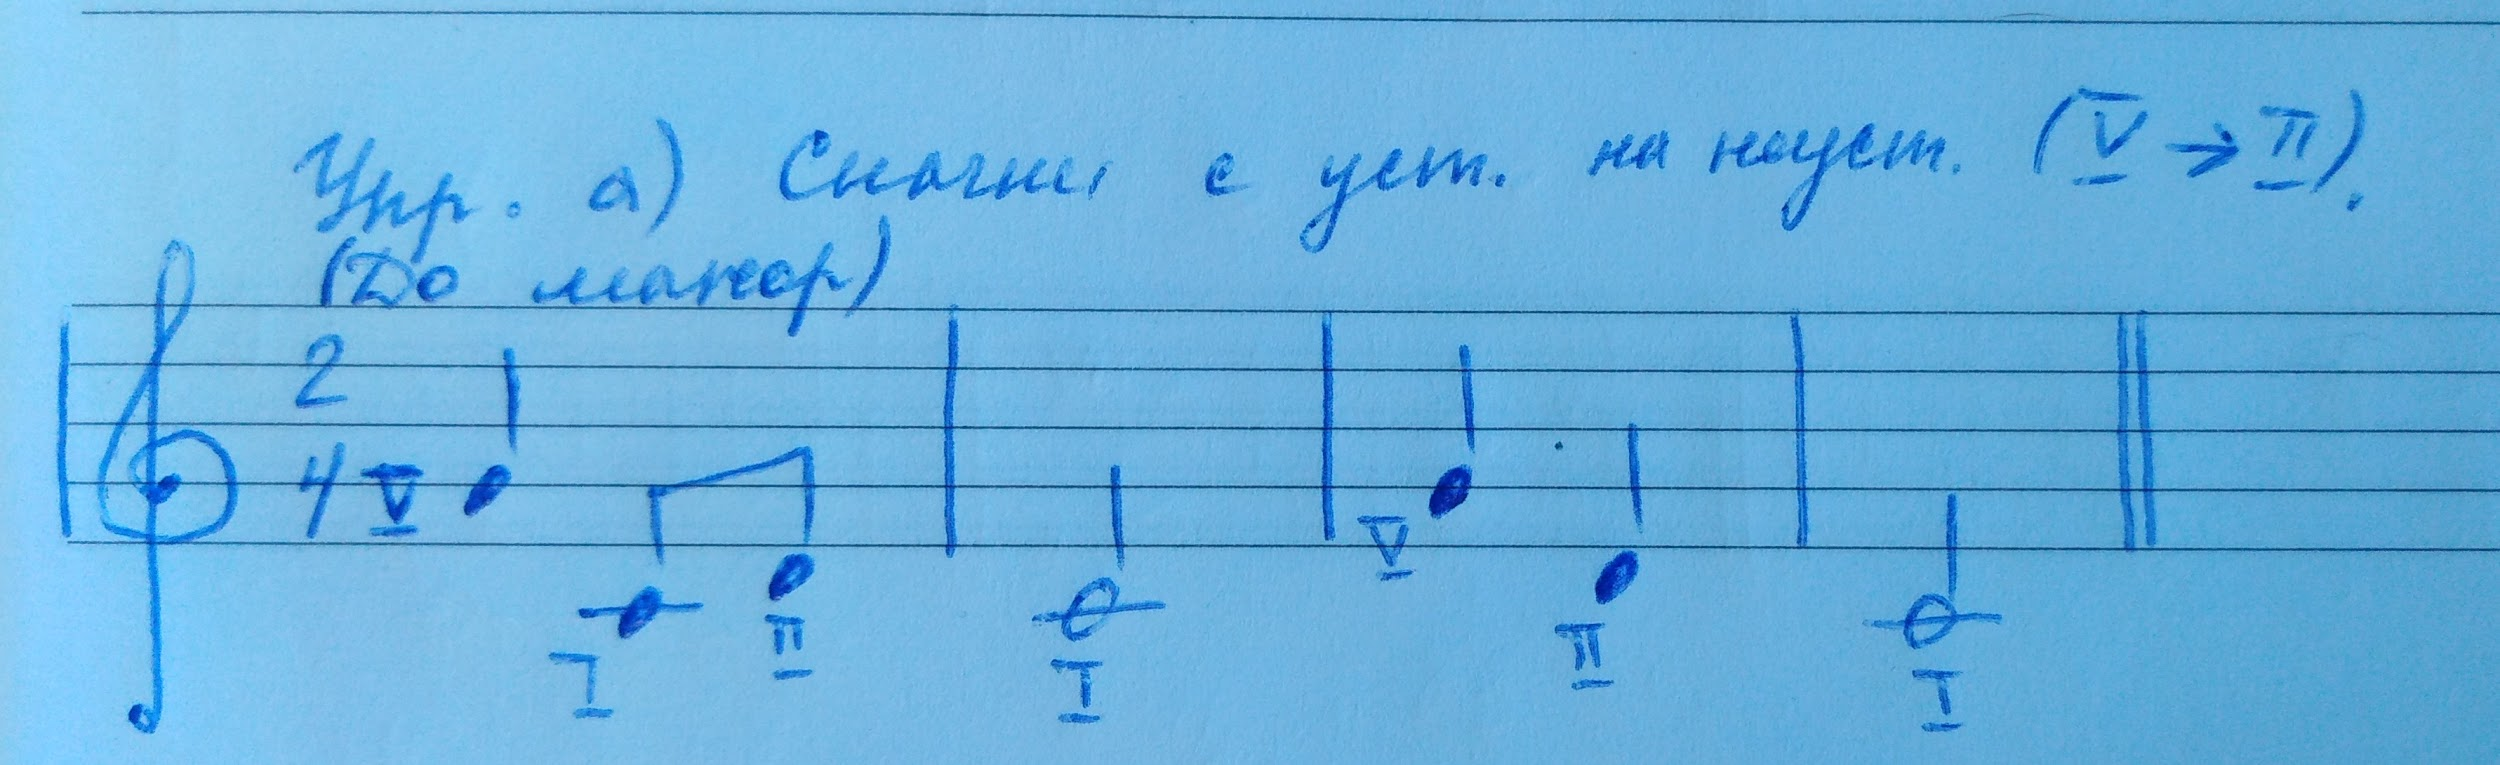 Упр. а) Скачки с уст. на неуст. (V → II).
(До мажор)
2
4 V
I II I V II I